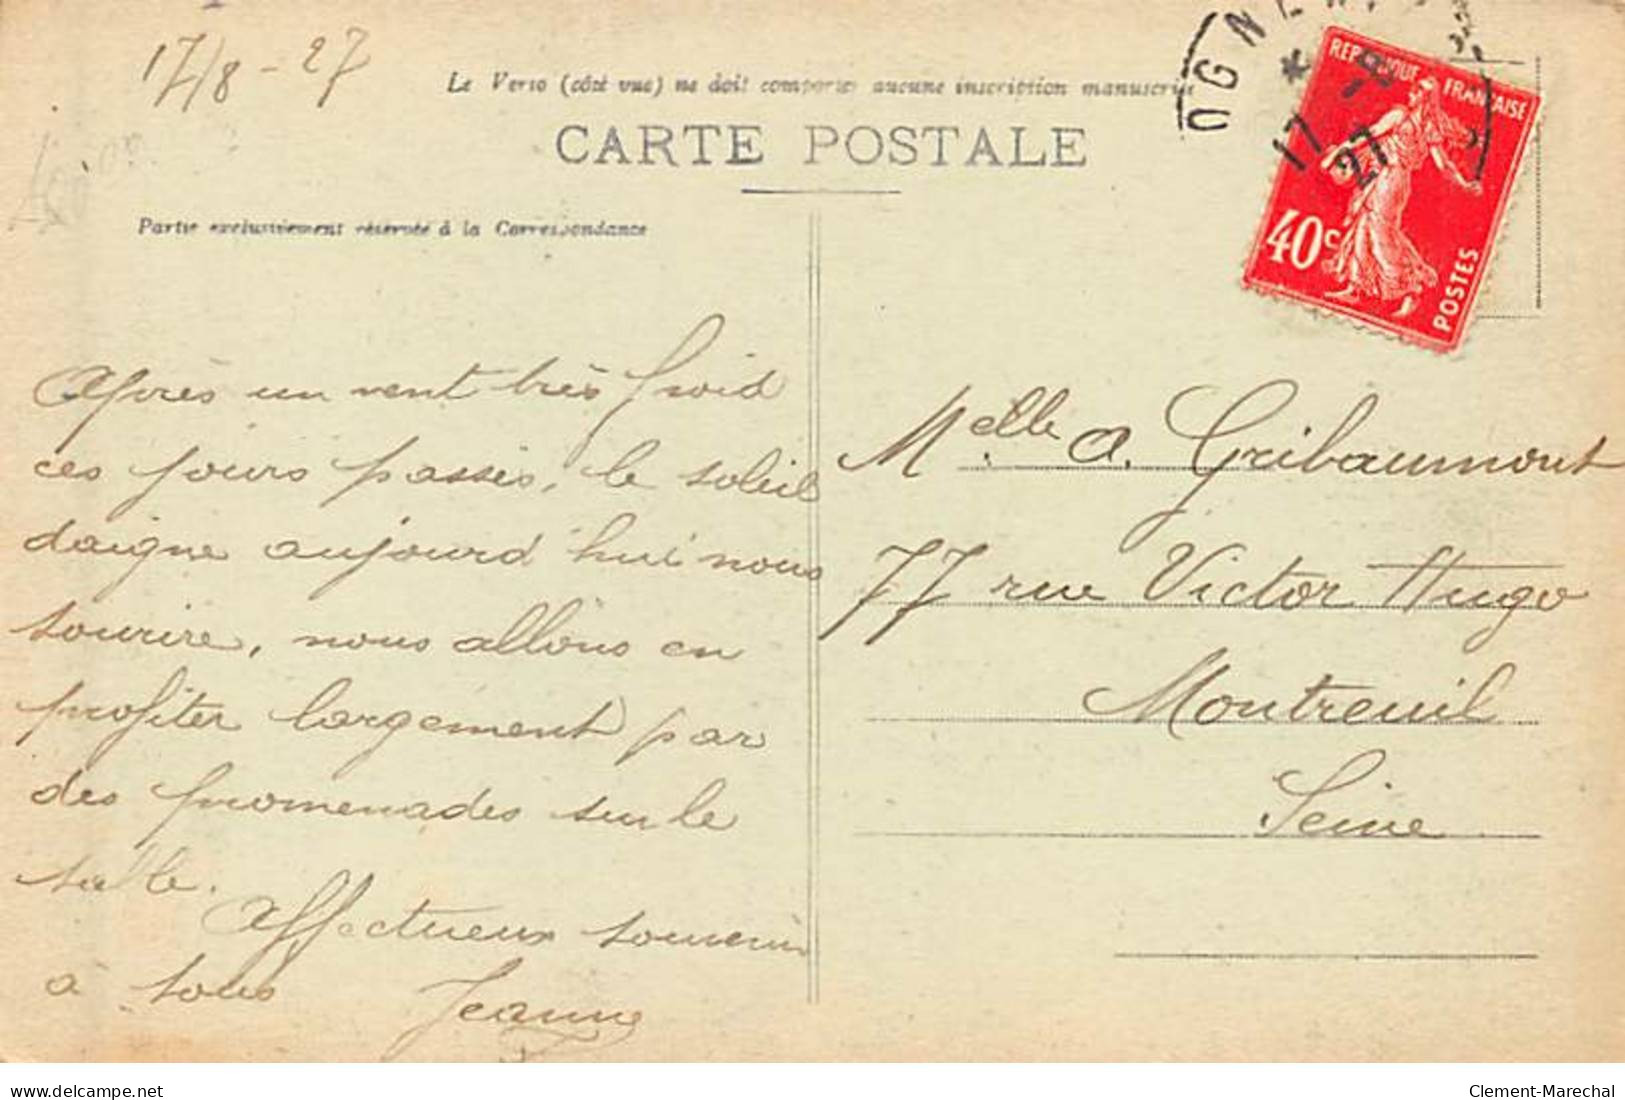 17/8-27
Le Verso (côté vue) ne doit comporter aucune inscription manuscrite
CARTE POSTALE
Partie exclusivement réservée à la Correspondance
REPUBLIQUE FRANÇAISE
40c
POSTES
17 -8
27
Après un vent très froid
ces jours passés, le soleil
daigne aujourd'hui nous
sourire, nous allons en
profiter largement par
des promenades sur le
sable.
Affectueux souvenir
à tous Jeanne
Melle A. Gribaumont
77 rue Victor Hugo
Montreuil
Seine
delcampe.net
Clement-Marechal